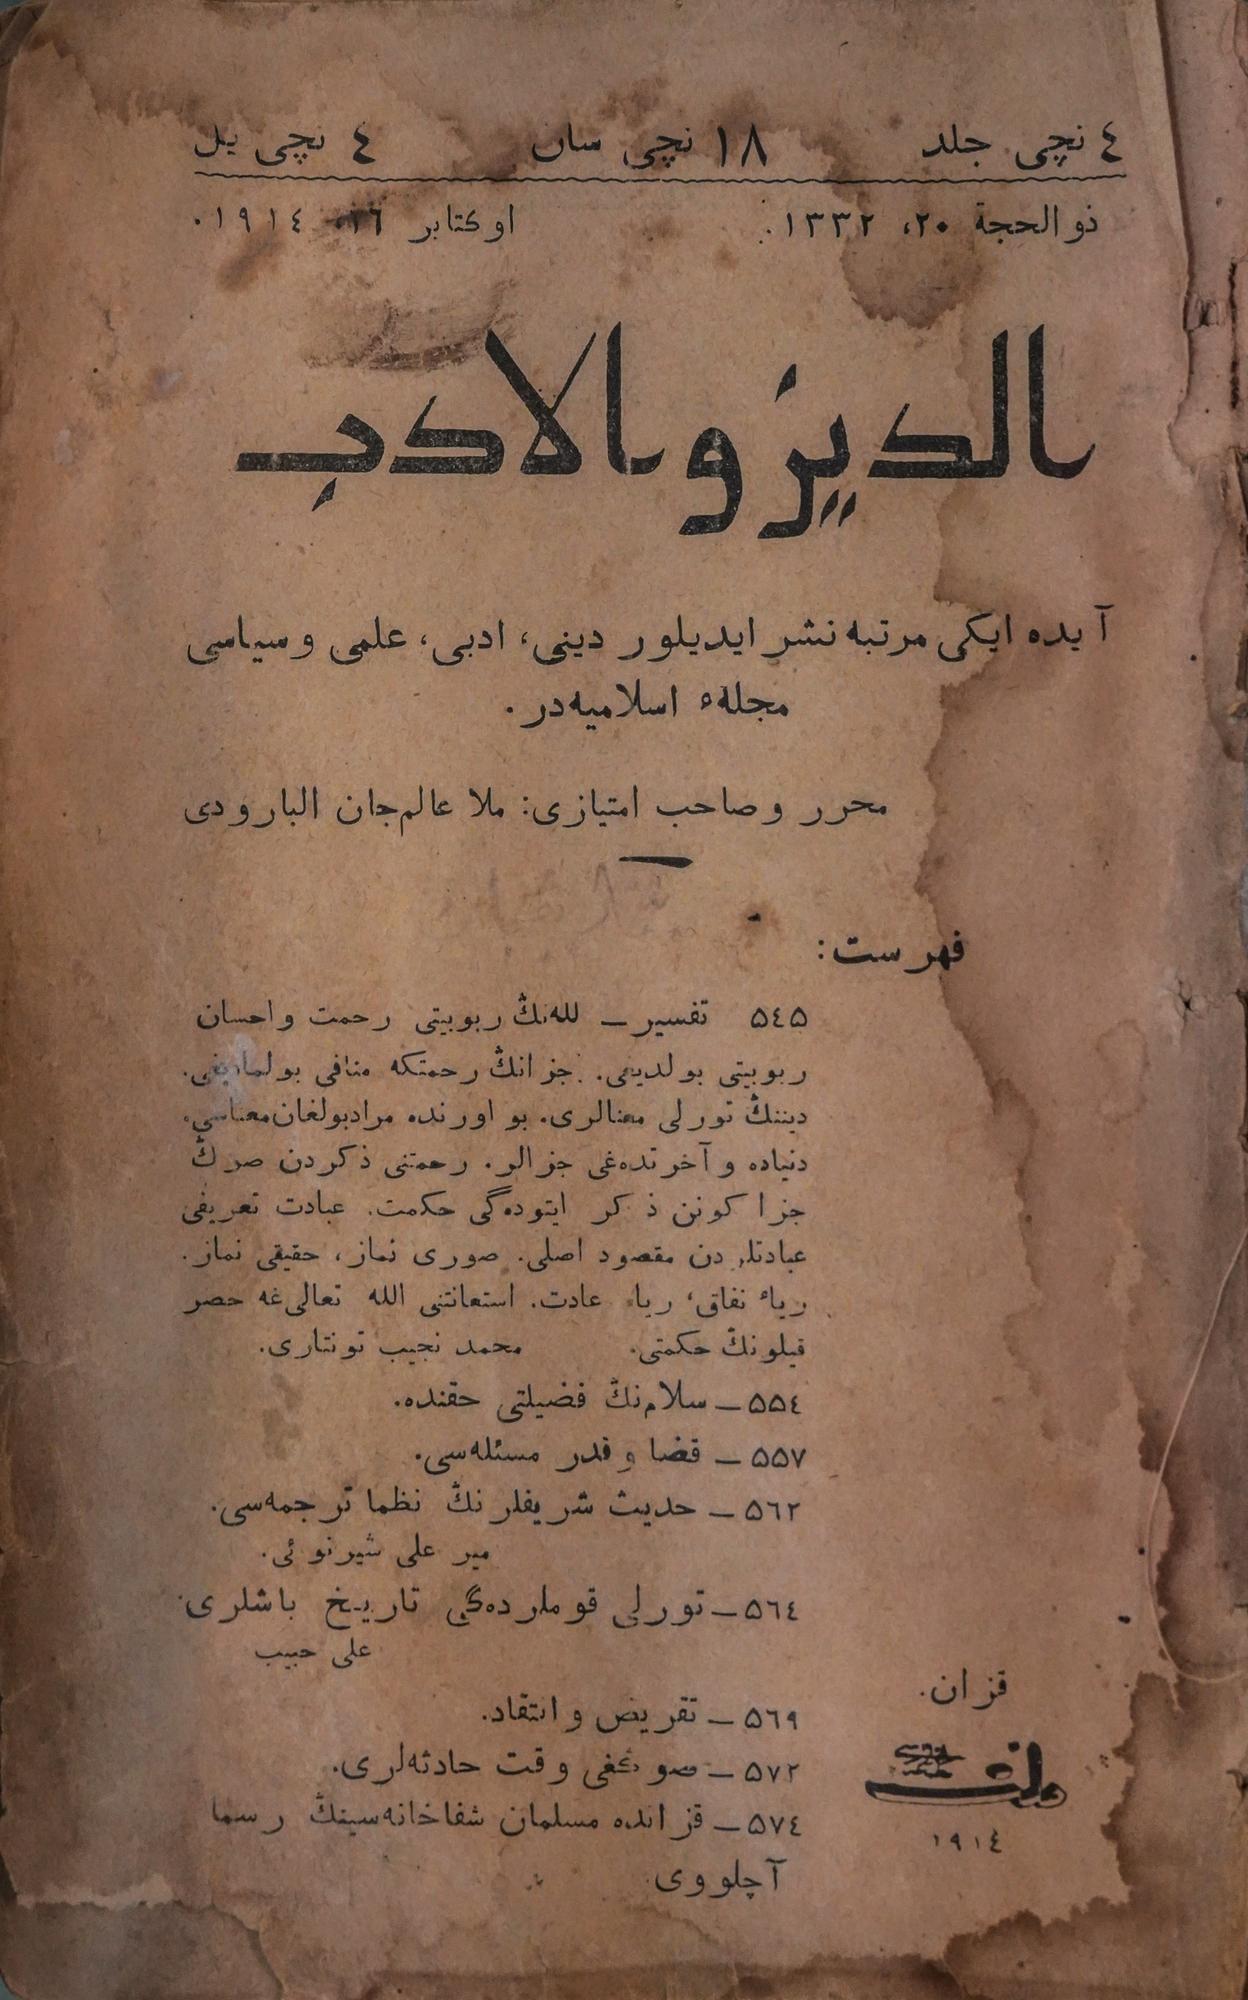 ٤ نچی جلد ١٨ نچی سان ٤ نچی یل
ذوالحجة ٢٠، ١٣٣٢. اوكتابر ١٦، ١٩١٤.
الدين والادب
آیده ایكی مرتبه نشر ایدیلور دینی، ادبی، علمی و سیاسی
مجلهٔ اسلامیه‌در.
محرر وصاحب امتیازی: ملا عالم‌جان البارودی
فهرست:
٥٤٥ تفسیر ــ لله‌نڭ ربوبیتی رحمت واحسان
ربوبیتی بولدیغی. جزانڭ رحمتكه منافی بولمادیغی.
دیننڭ تورلی معنالری. بو اورنده مرادبولغان معناسی.
دنیاده و آخرتده‌غی جزالر. رحمتنی ذكردن صوڭ
جزا كونن ذكر ایتوده‌گی حكمت. عبادت تعریفی
عبادتلردن مقصود اصلی. صوری نماز، حقیقی نماز.
ریاء نفاق، ریا عادت. استعانتنی الله تعالی‌غه حصر
قیلونڭ حكمتی. محمد نجیب تونتاری.
٥٥٤ــ سلام‌نڭ فضیلتی حقنده.
٥٥٧ ــ قضا و قدر مسئله‌سی.
٥٦٢ ــ حدیث شریفلرنڭ نظما ترجمه‌سی.
میر علی شیر نوئی.
٥٦٤ــ تورلی قوملرده‌گی تاریخ باشلری
علی حبیب
٥٦٩ ــ تقریض و انتقاد.
٥٧٢ ــ صوڭغی وقت حادثه‌لری.
٥٧٤ــ قزانده مسلمان شفاخانه‌سینڭ رسما
آچلووی
قزان.
ملت
١٩١٤